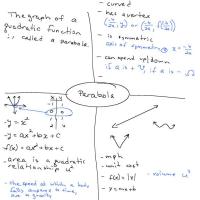 The graph of a
quadratic function
is called a parabola.
- curved
- has a vertex
- is symmetric
axis of symmetry
- can open up/down
if a is +
if a is -
Parabola
x y
- y = x²
- y = ax² + bx + c
- f(x) = ax² + bx + c
- area is a quadratic
relationship u²
- the speed at which a body
falls
gravity
- mph
- unit cost
- f(x) = |x|
- y = mx + b
- volume u³